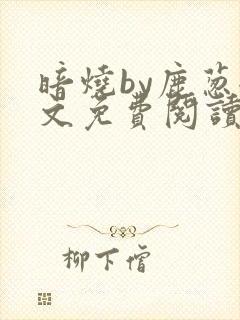 暗燒by鹿葱
文免費閱讀
柳下僧